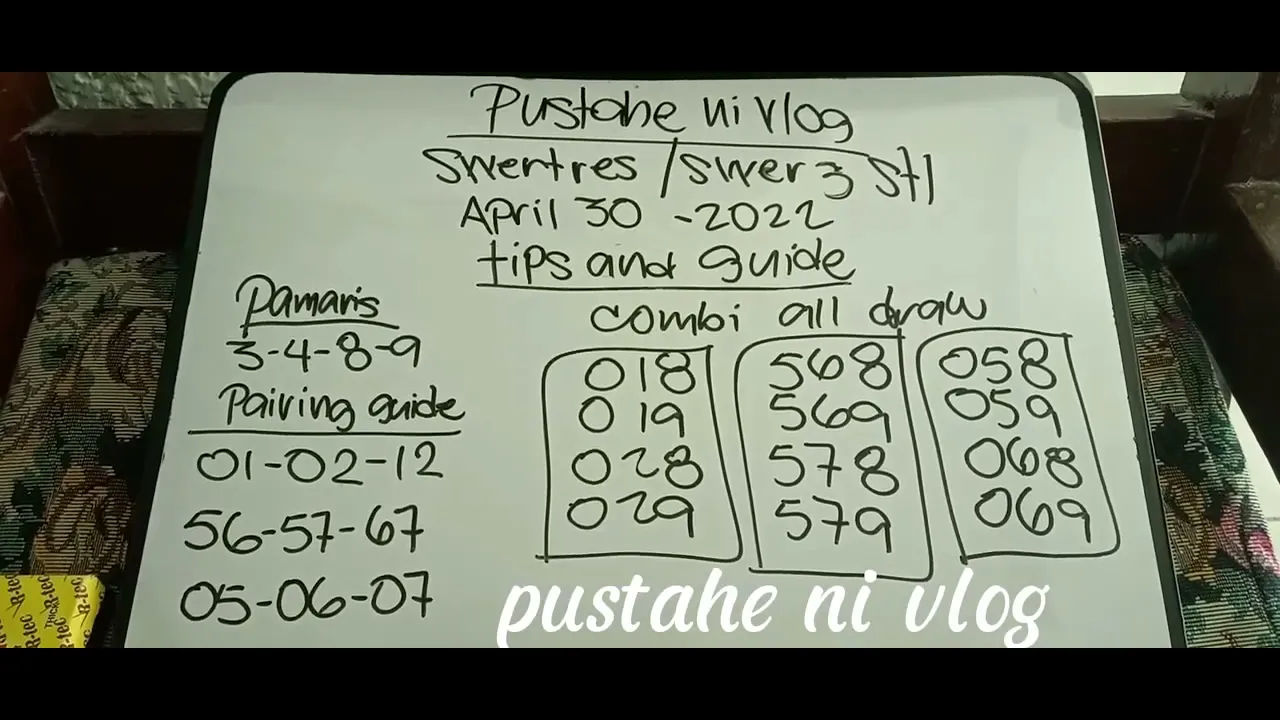 Pustahe ni vlog
Swertres / swer 3 Stl
April 30 -2022
tips and guide
Pamaris
3-4-8-9
Pairing guide
01-02-12
56-57-67
05-06-07
combi all draw
018 568 058
019 569 059
028 578 068
029 579 069
pustahe ni vlog